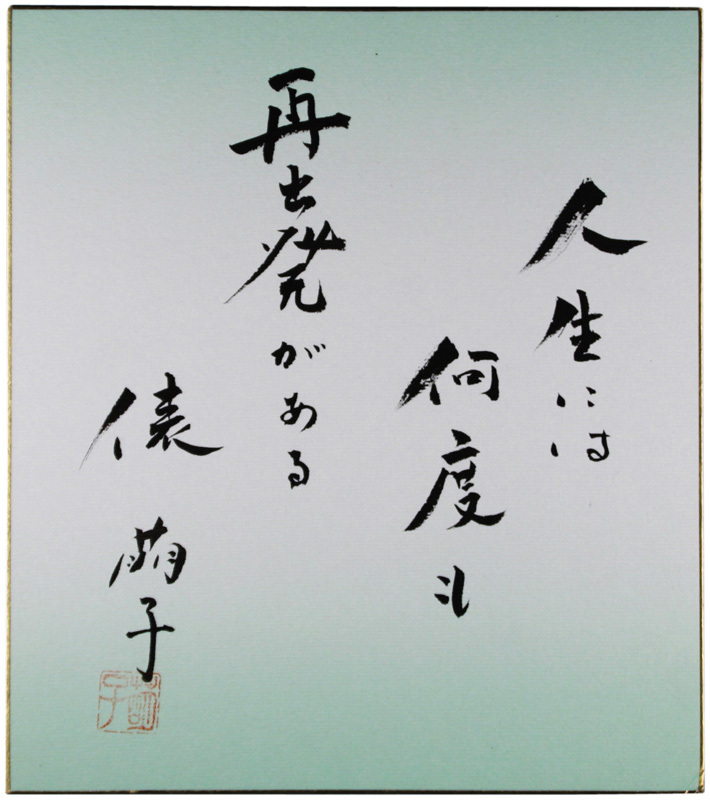 人生には
何度も
再出発がある
俵萠子